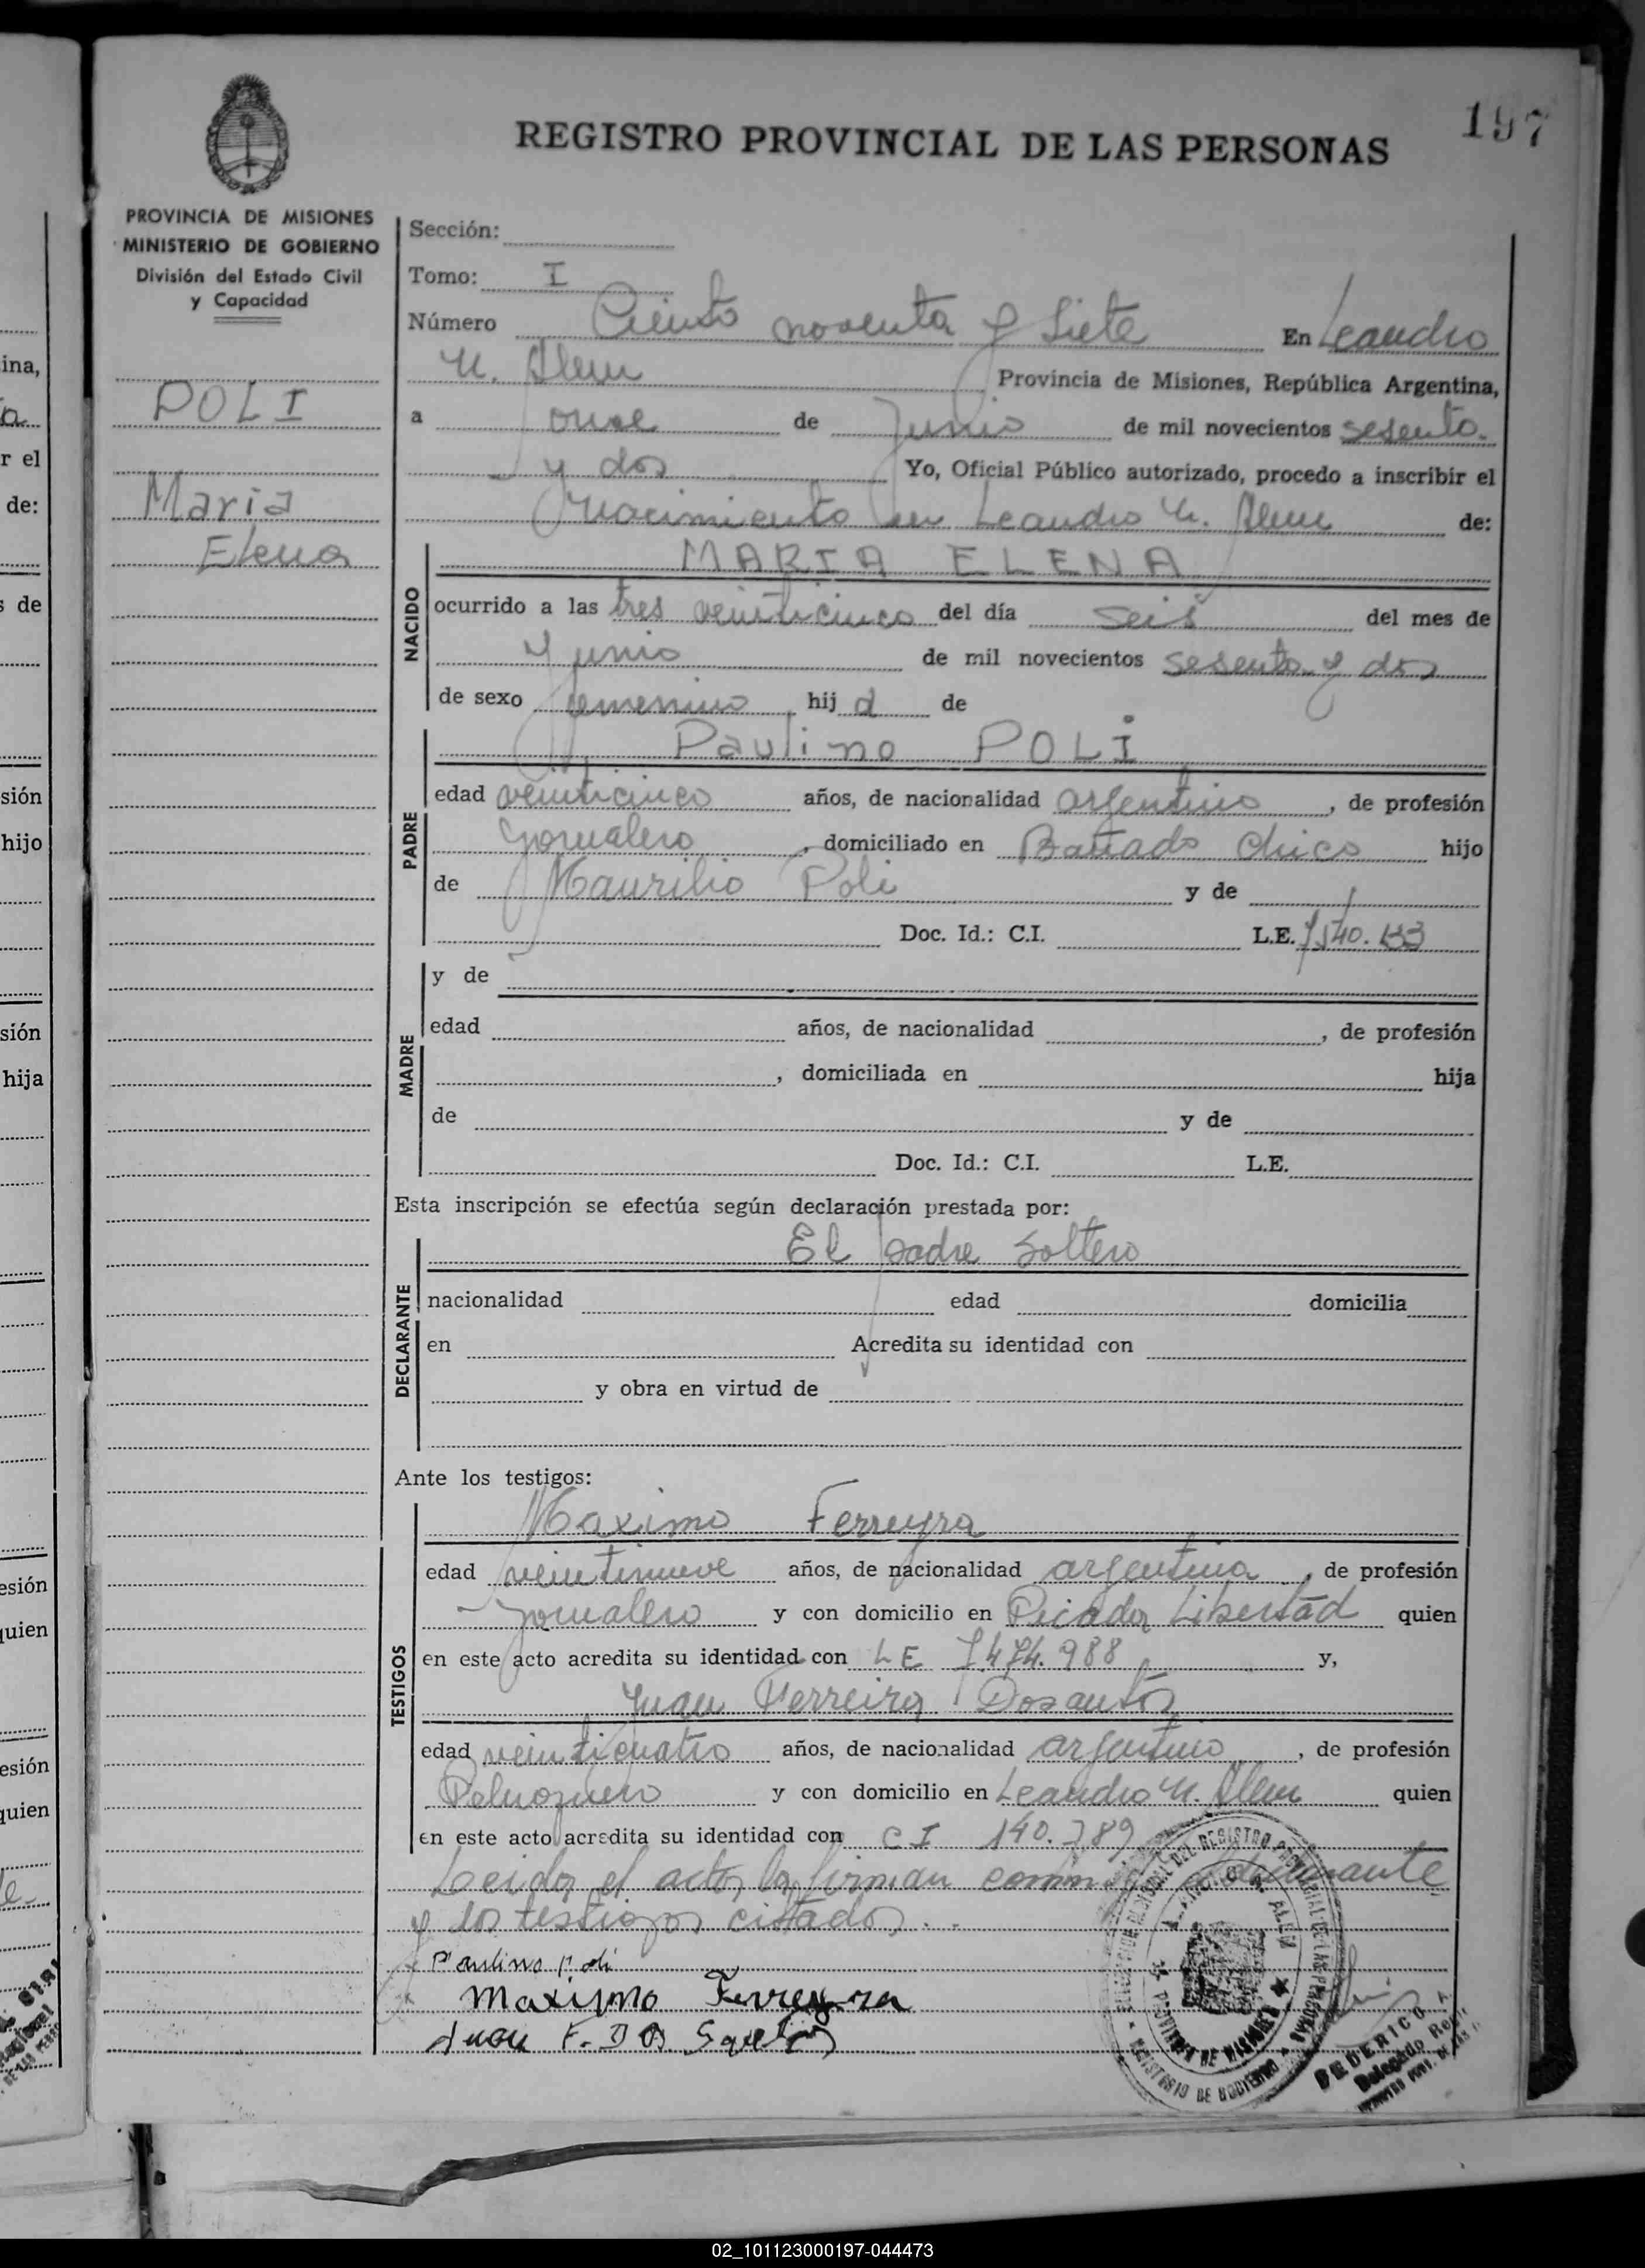 197
REGISTRO PROVINCIAL DE LAS PERSONAS
PROVINCIA DE MISIONES
MINISTERIO DE GOBIERNO
División del Estado Civil
y Capacidad
POLI
Maria
Elena
Sección:
Tomo: I
Número Ciento noventa y Siete En Leandro
N. Alem Provincia de Misiones, República Argentina,
a once de Junio de mil novecientos sesenta
y dos Yo, Oficial Público autorizado, procedo a inscribir el
Nacimiento en Leandro N. Alem de:
NACIDO
MARIA ELENA
ocurrido a las tres veinticinco del día seis del mes de
Junio de mil novecientos sesenta y dos
de sexo femenino hij a de
PADRE
Paulino POLI
edad veinticinco años, de nacionalidad argentino, de profesión
Jornalero, domiciliado en Bañado Chico hijo
de Maurilio Poli y de
Doc. Id.: C.I. L.E.
MADRE
y de
edad años, de nacionalidad , de profesión
, domiciliada en hija
de y de
Doc. Id.: C.I. L.E.
Esta inscripción se efectúa según declaración prestada por:
DECLARANTE
El padre soltero
nacionalidad edad domicilia
en Acredita su identidad con
y obra en virtud de
Ante los testigos:
TESTIGOS
Maximo Ferreyra
edad veintinueve años, de nacionalidad argentina, de profesión
Jornalero y con domicilio en Picada Libertad quien
en este acto acredita su identidad con LE 7.474.988 y,
Juan Ferreira Dosantos
edad veinticuatro años, de nacionalidad argentino, de profesión
y con domicilio en Leandro N. Alem quien
en este acto acredita su identidad con CI 140.789
Leida el acta, la firman conmigo, el declarante
y los testigos citados.
Paulino Poli
Maximo Ferreyra
Juan F. DOS
PROVINCIA DE MISIONES
MINISTERIO DE GOBIERNO
FEDERICO A.
Delegado
ina,
r el
de:
s de
sión
hijo
sión
hija
esión
quien
esión
quien
02_101123000197-044473